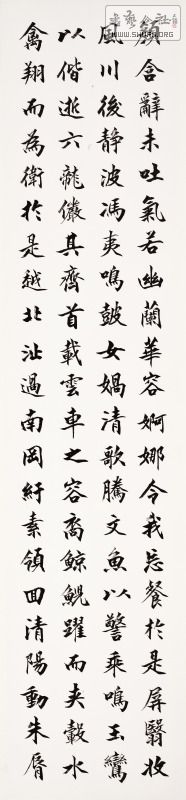 顏含辭未吐氣若幽蘭華容婀娜令我忘餐於是屏翳收
風川後静波馮夷鳴皷女媧清歌騰文魚以警乘鳴玉鸞
以偕逝六龍儼其齊首載雲車之容裔鯨鯢躍而夾轂水
禽翔而為衛於是越北沚過南岡紆素領回清陽動朱脣